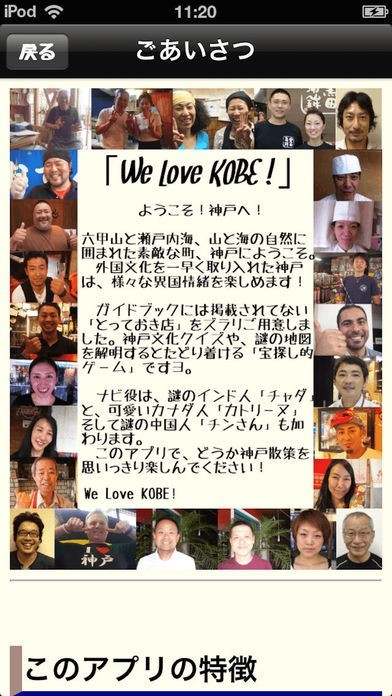 iPod 11:20
戻る ごあいさつ
「We Love KOBE!」
ようこそ！神戸へ！
六甲山と瀬戸内海、山と海の自然に
囲まれた素敵な町、神戸にようこそ。
外国文化を一早く取り入れた神戸
は、様々な異国情緒を楽しめます！
ガイドブックには掲載されてない
「とっておき店」をズラリご用意しま
した。神戸文化クイズや、謎の地図
を解明するとたどり着ける「宝探し的
ゲーム」ですヨ。
ナビ役は、謎のインド人「チャダ」
と、可愛いカナダ人「カトリーヌ」
そして謎の中国人「チンさん」も加
わります。
このアプリで、どうか神戸散策を
思いっきり楽しんでください！
We Love KOBE!
I ♥
神戸
このアプリの特徴